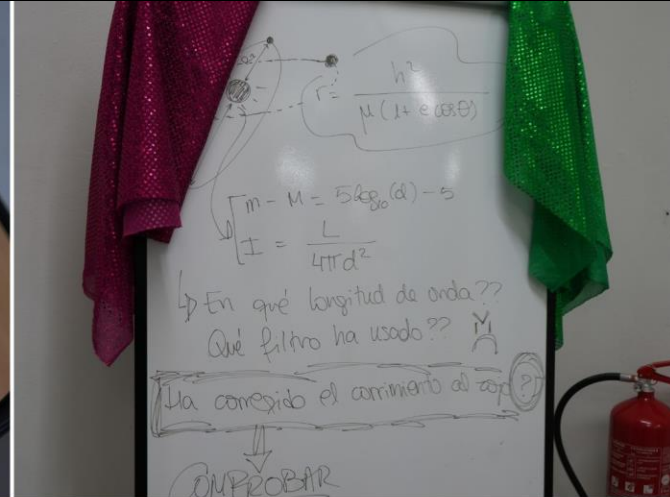 r = h² / μ(1+e cosθ)
m - M = 5 log₁₀(d) - 5
I = L / 4πd²
↳ En qué longitud de onda??
Qué filtro ha usado??
Ha corregido el corrimiento al rojo?
COMPROBAR